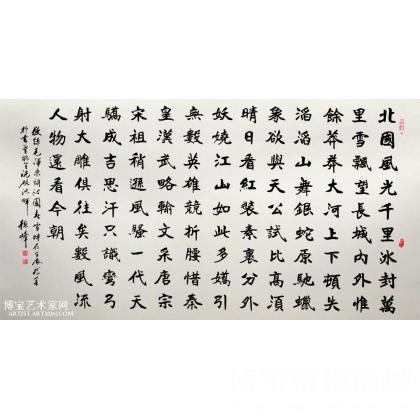 北國風光千里冰封萬
里雪飄望長城內外惟
餘莽莽大河上下頓失
滔滔山舞銀蛇原馳蠟
象欲與天公試比高須
晴日看紅裝素裹分外
妖嬈江山如此多嬌引
無數英雄競折腰惜秦
皇漢武略輸文采唐宗
宋祖稍遜風騷一代天
驕成吉思汗只識彎弓
射大雕俱往矣數風流
人物還看今朝
敬錄毛澤東詞沁園春雪
博宝艺术家网
ARTIST.ARTXUN.COM